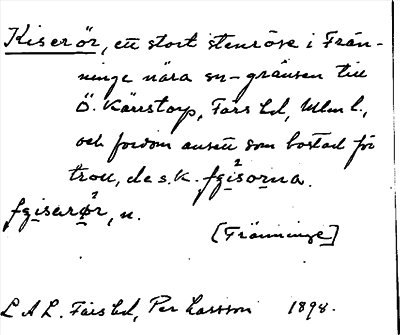 Kiserör, ett stort stenröse i Frän-
ninge nära sn-gränsen till
Ö. Kärrstorp, Färs hd, Mlm l.,
och fordom ansett som bostad för
troll, de s.k. fgisorna.
fgisarør, n.
[Fränninge]
LAL. Färs hd, Per Larsson 1898.